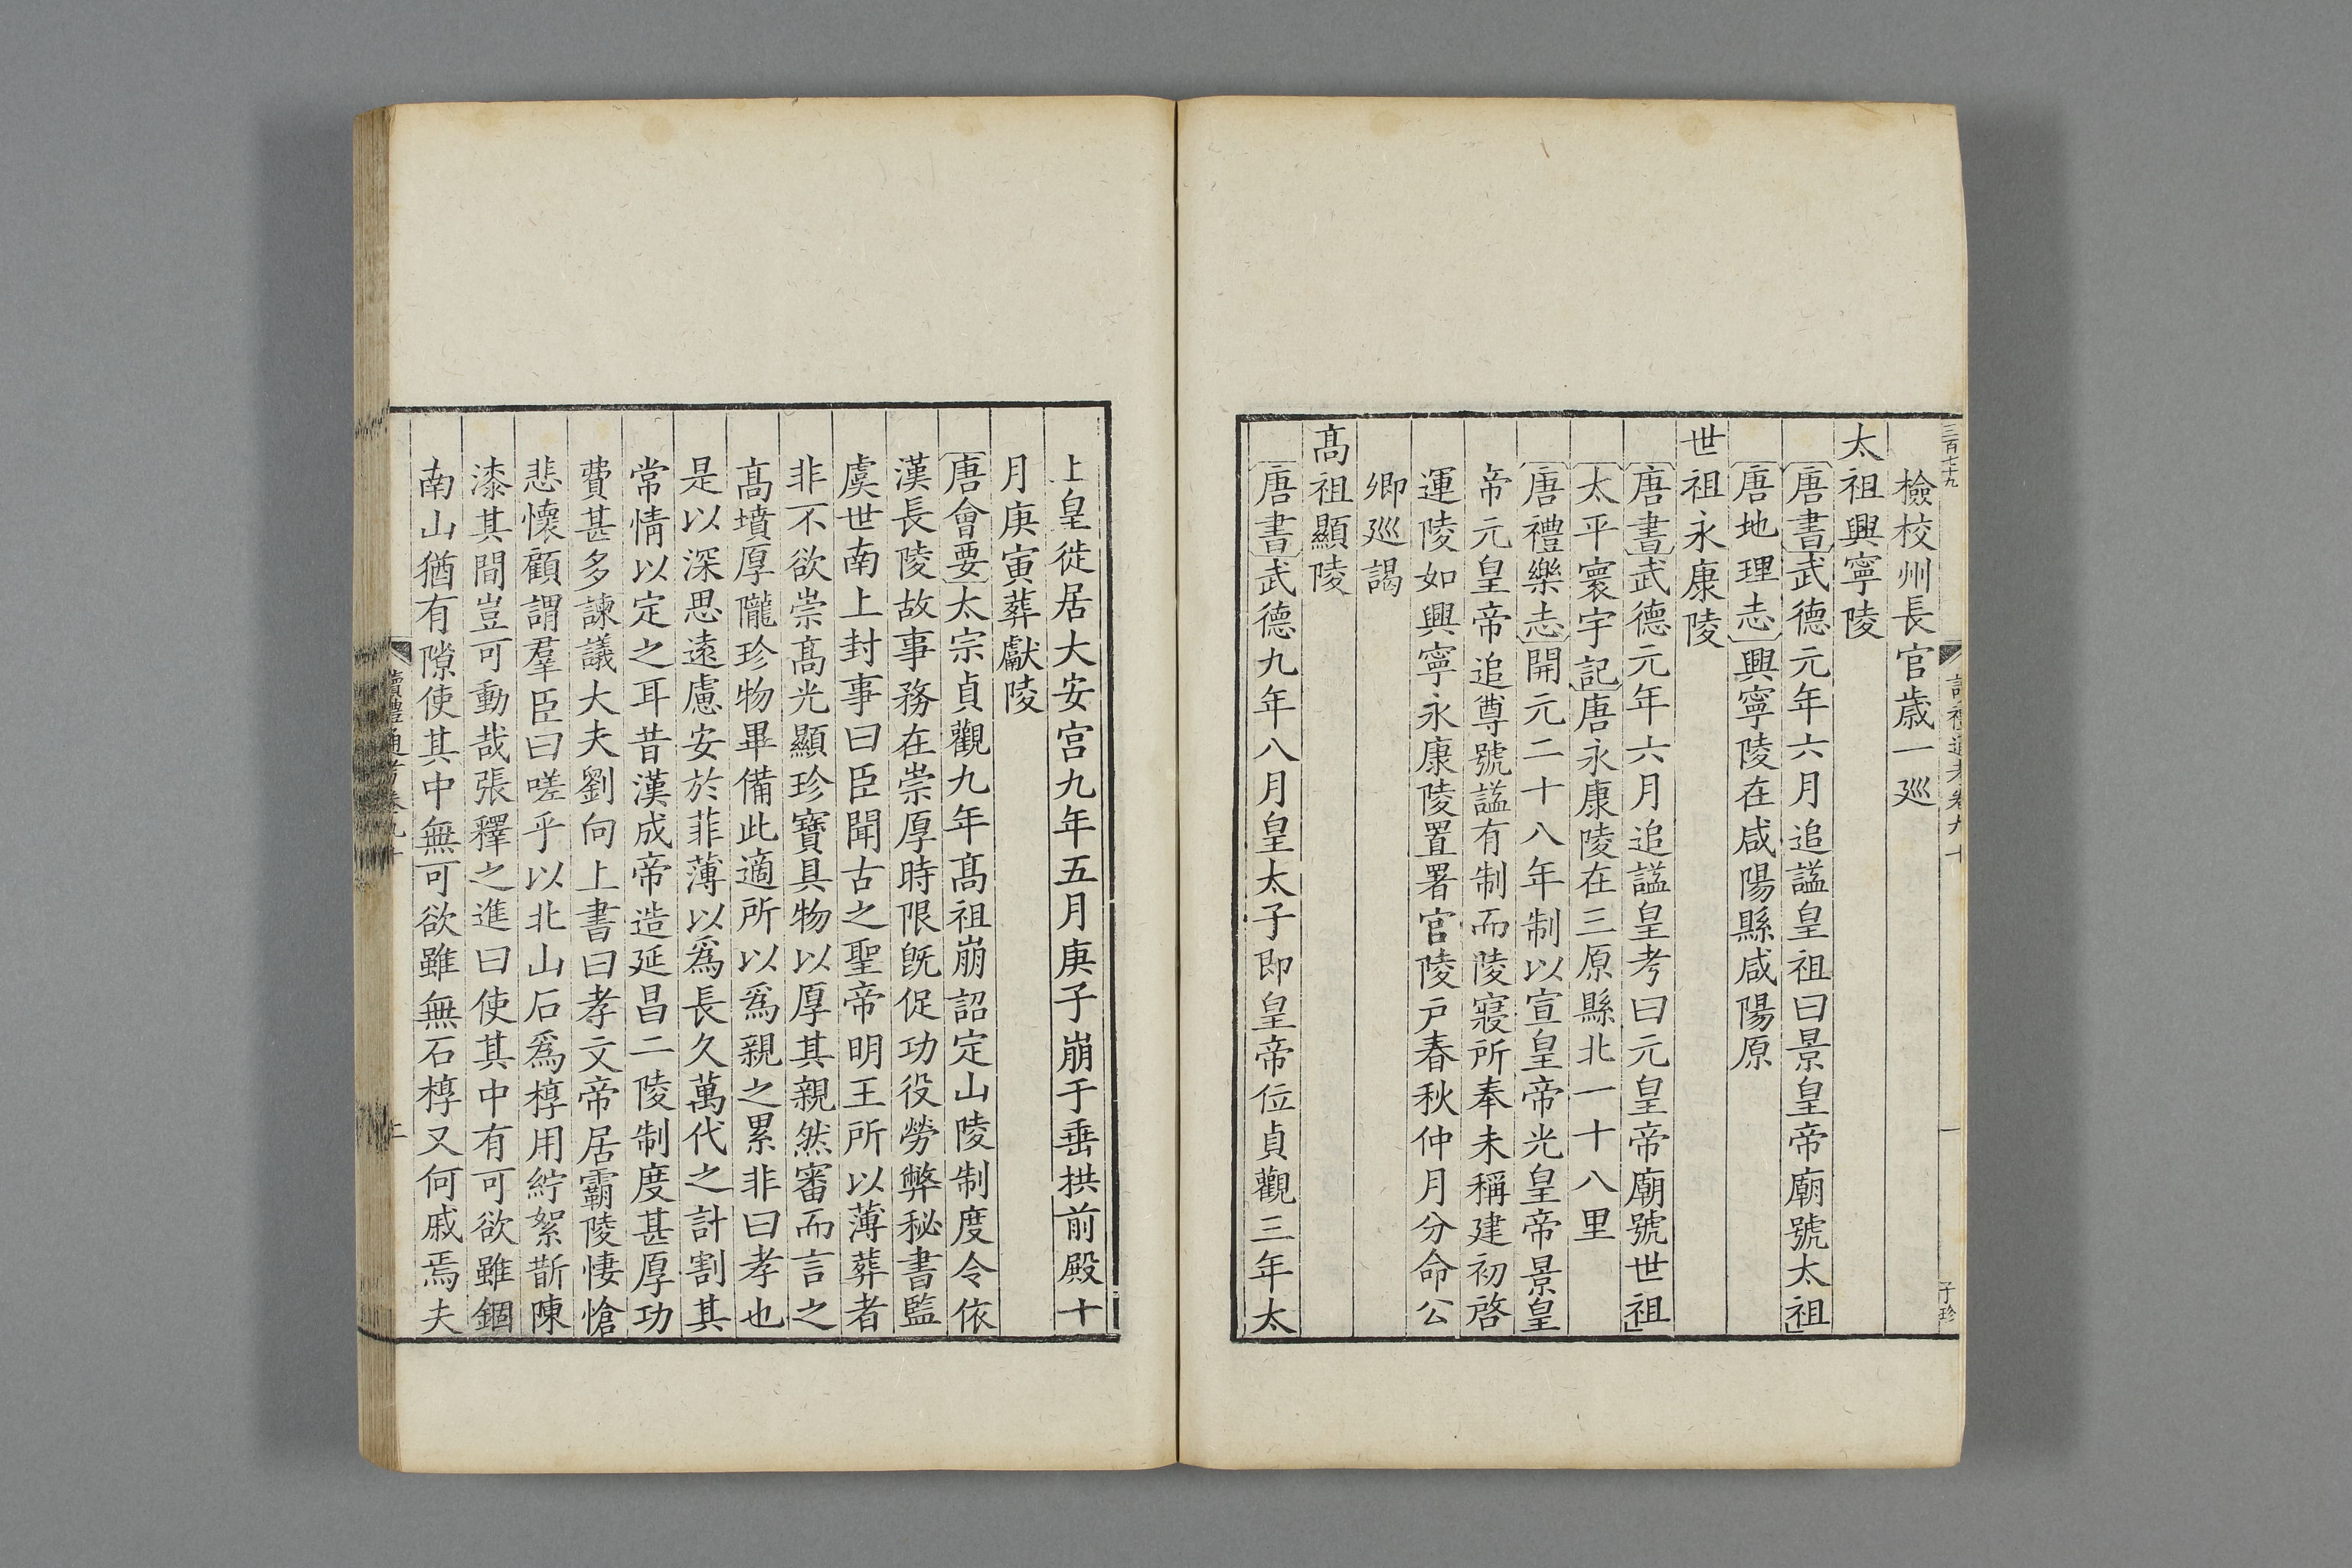 三百七十九
讀禮通考卷九十
一
子珍
檢校州長官歲一廵
太祖興寧陵
唐書武德元年六月追謚皇祖曰景皇帝廟號太祖
唐地理志興寧陵在咸陽縣咸陽原
世祖永康陵
唐書武德元年六月追謚皇考曰元皇帝廟號世祖
太平寰宇記唐永康陵在三原縣北一十八里
唐禮樂志開元二十八年制以宣皇帝光皇帝景皇
帝元皇帝追尊號謚有制而陵寢所奉未稱建初啓
運陵如興寧永康陵置署官陵戸春秋仲月分命公
卿廵謁
髙祖顯陵
唐書武德九年八月皇太子即皇帝位貞觀三年太
上皇徙居大安宫九年五月庚子崩于垂拱前殿十
月庚寅葬獻陵
唐會要太宗貞觀九年髙祖崩詔定山陵制度令依
漢長陵故事務在崇厚時限旣促功役勞弊秘書監
虞世南上封事曰臣聞古之聖帝明王所以薄葬者
非不欲崇髙光顯珍寶具物以厚其親然審而言之
髙墳厚隴珍物畢備此適所以爲親之累非曰孝也
是以深思遠慮安於菲薄以爲長久萬代之計割其
常情以定之耳昔漢成帝造延昌二陵制度甚厚功
費甚多諫議大夫劉向上書曰孝文帝居霸陵悽愴
悲懷顧謂羣臣曰嗟乎以北山石爲椁用紵絮斮陳
漆其間豈可動哉張釋之進曰使其中有可欲雖錮
南山猶有隙使其中無可欲雖無石椁又何戚焉夫
讀禮通考卷九十